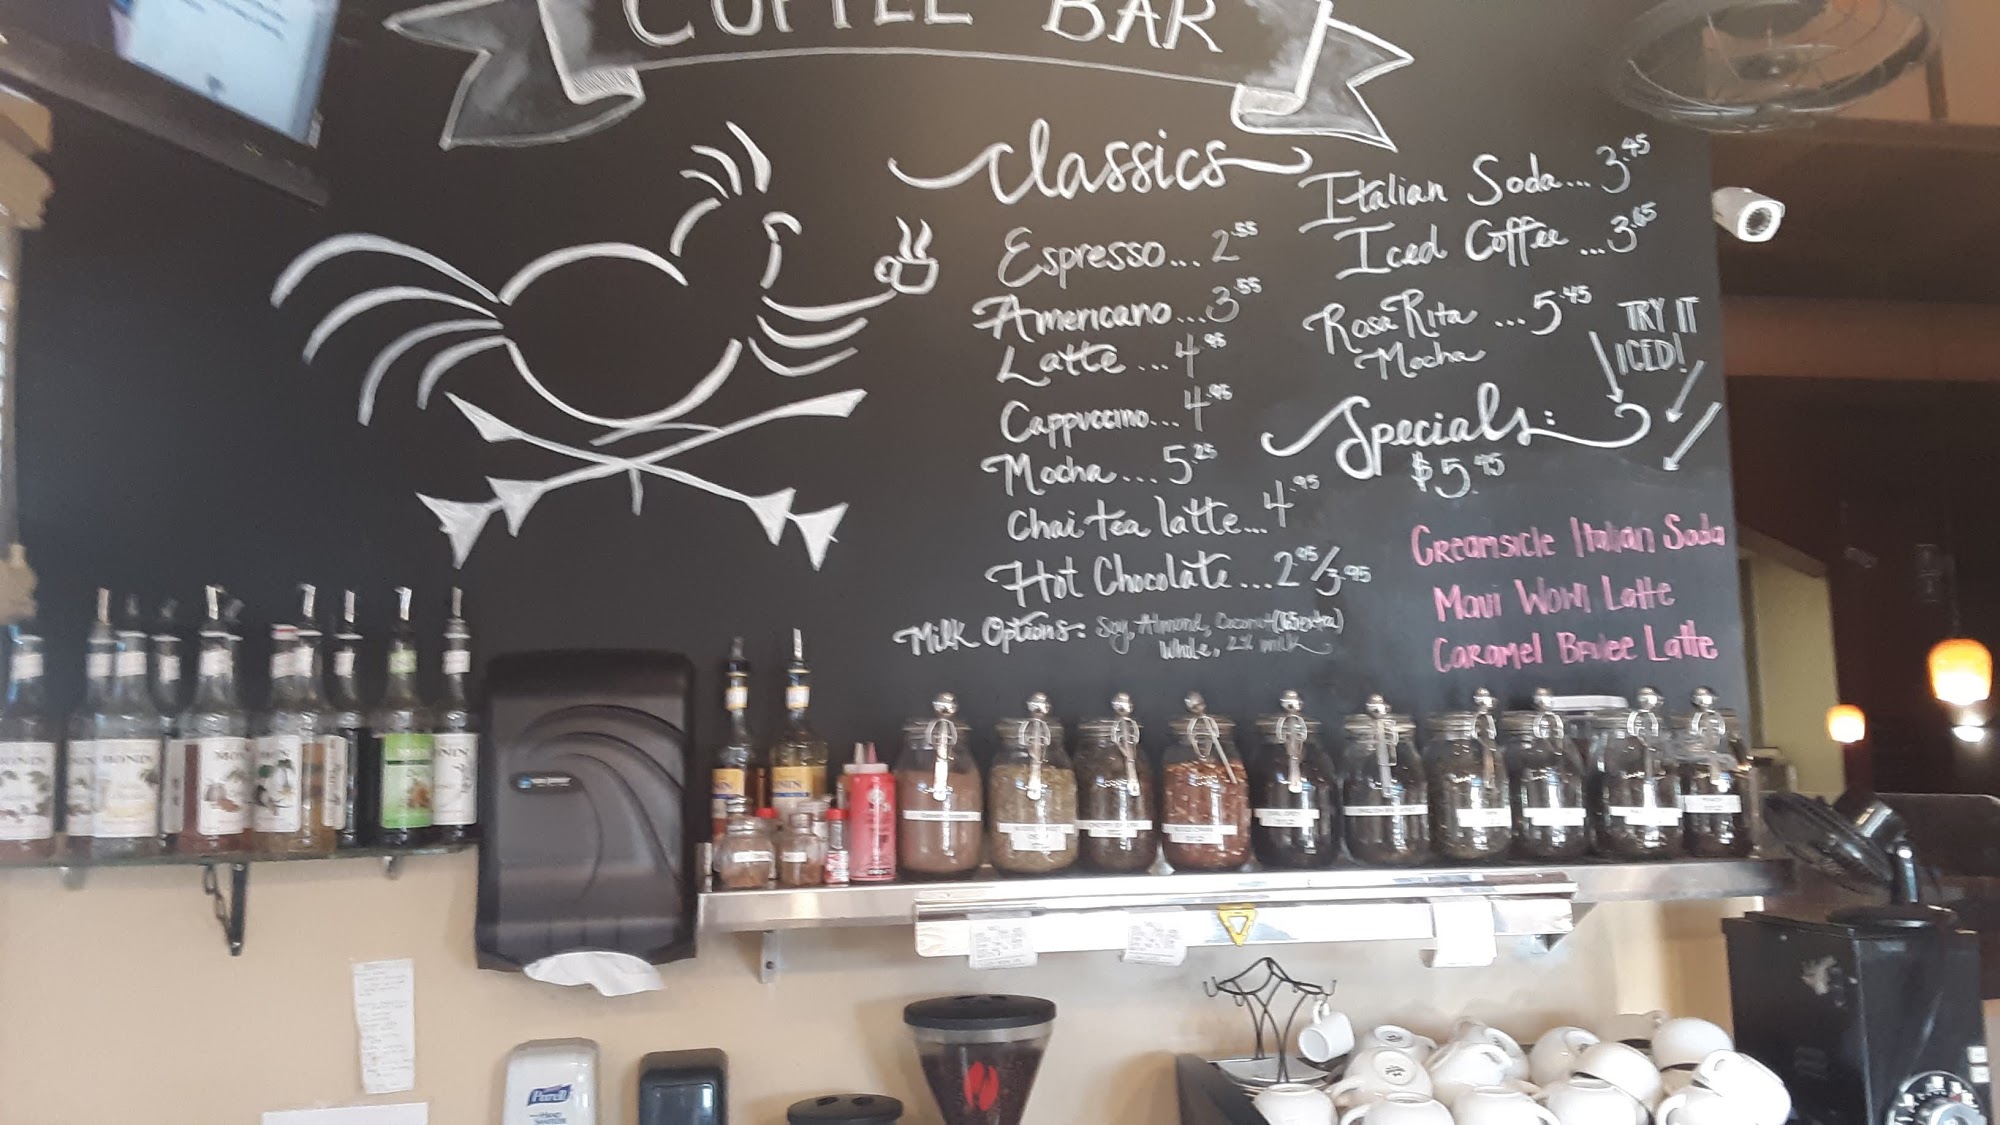 COFFEE BAR
Classics
Espresso... 2.55
Americano... 3.55
Latte ... 4.95
Cappuccino... 4.95
Mocha ... 5.25
Chai tea latte... 4.95
Hot Chocolate ... 2.95/3.95
Milk Options: Soy, Almond, Coconut (.65 extra)
Whole, 2% milk
Italian Soda... 3.45
Iced Coffee ... 3.65
Rosa Rita ... 5.45
Mocha
TRY IT
ICED!
Specials:
$5.45
Creamsicle Italian Soda
Maui Wowi Latte
Caramel Brulee Latte
MONIN
Purell
HAND